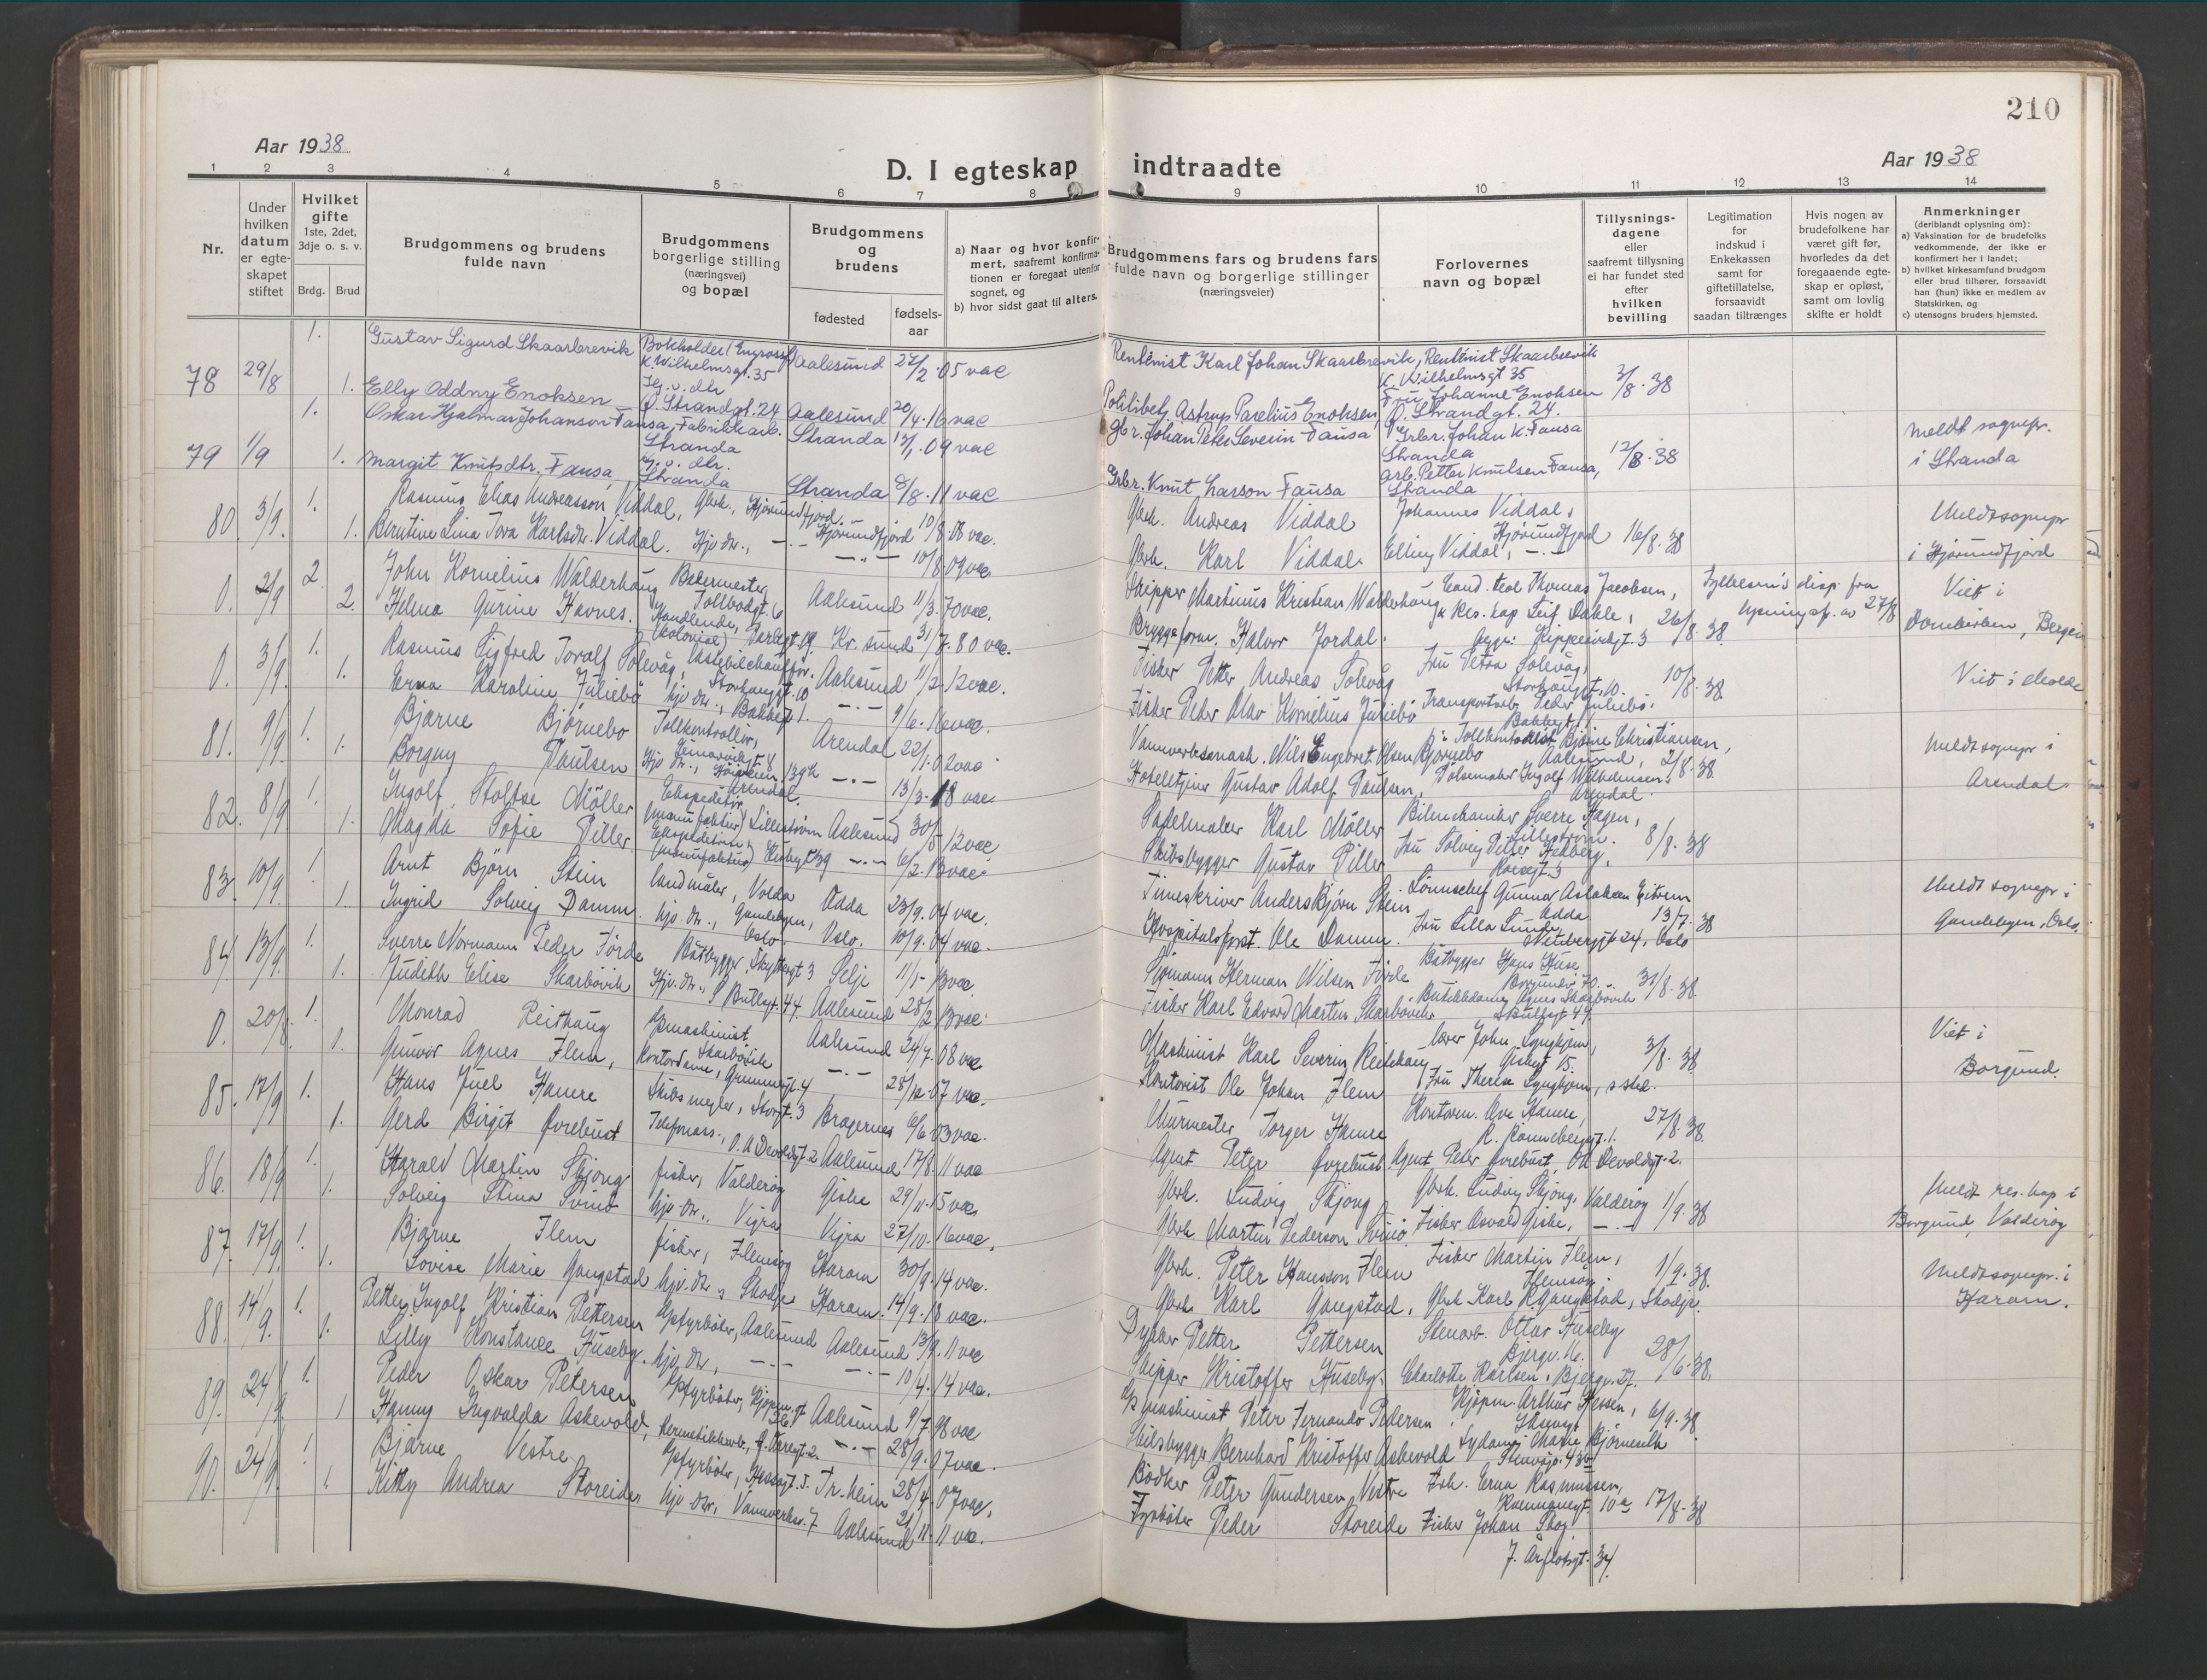 210
Aar 1938
D. I egteskap indtraadte
Aar 1938
1 2 3 4 5 6 7 8 9 10 11 12 13 14
Nr.
Under hvilken datum er egte-skapet stiftet
Hvilket gifte 1ste, 2det, 3dje o. s. v.
Brdg. Brud
Brudgommens og brudens fulde navn
Brudgommens borgerlige stilling (næringsvei) og bopæl
Brudgommens og brudens
fødested
fødsels-aar
a) Naar og hvor konfir-mert, saafremt konfirma-tionen er foregaat utenfor sognet, og
b) hvor sidst gaat til alters.
Brudgommens fars og brudens fars fulde navn og borgerlige stillinger (næringsveier)
Forlovernes navn og bopæl
Tillysnings-dagene eller saafremt tillysning ei har fundet sted efter hvilken bevilling
Legitimation for indskud i Enkekassen samt for giftetillatelse, forsaavidt saadan tiltrænges
Hvis nogen av brudefolkene har været gift før, hvorledes da det foregaaende egte-skap er opløst, samt om lovlig skifte er holdt
Anmerkninger (deriblandt oplysning om):
a) Vaksination for de brudefolks vedkommende, der ikke er konfirmert her i landet;
b) hvilket kirkesamfund brudgom eller brud tilhører, forsaavidt han (hun) ikke er medlem av Statskirken, og
c) utensogns bruders hjemsted.
78 29/8 1. Gustav Sigurd Skaarbrevik Bokholder K. Wilhelmsgt. 35 Aalesund 27/2 05 vac Rentenist Karl Johan Skaarbrevik, Rentenist Skaarbrevik K. Wilhelmsgt 35 3/8. 38
1. Elly Oddny Enoksen Hj. v. dtr Ø. Strandgt. 24 Aalesund 20/4. 16 vac Politibetj. Astrup Parelius Enoksen Fru Johanne Enoksen Ø. Strandgt. 24.
79 1/9 1. Oskar Hjalmar Johanson Fausa, Fabrikkarb. Stranda Stranda 13/1. 09 vac gbr. Johan Peter Severin Fausa Grbr. Johan K. Fausa Stranda 12/8. 38 meldt sognepr. i Stranda
1. Margit Knutsdtr. Fausa Hj. v. dtr. Stranda Stranda 8/8. 11 vac Grbr. Knut Larson Fausa arb. Petter Knutsen Fausa, Stranda
80. 3/9. 1. Rasmus Elias Andreasson Viddal, Gbrk., Hjørundfjord. Hjørundfjord 10/8. 08 vac. Gbrk. Andreas Viddal Johannes Viddal, Hjørundfjord 16/8. 38 Meldt sognepr i Hjørundfjord
1. Berntine Lina Tora Karlsdtr. Viddal. Hjv dtr., 10/8. 09 vac Gbrk. Karl Viddal. Elling Viddal,
0. 2/9 2. John Kornelius Walderhaug Bakermester, Tollbodgt. 6 Aalesund 11/3. 70 vac. Skipper Martinus Kristian Walderhaug Cand. teol Thomas Jacobsen, 26/8. 38 Viet i Domkirken, Bergen
2. Helma Gurine Havnes. Handlende, (kolonial) Kr. sund 31/7. 80 vac. Bryggeform. Halvor Jordal. Res. kap Leif Dahle,
0. 3/9. 1. Rasmus Sigfred Toralf Solevåg, Lastebilchauffør, Storhaugt. 10 Aalesund 11/2. 12 vac. Fisker Petter Andreas Solevåg Fru Petra Solevåg, Storhaugt. 10. 10/8. 38 Viet i Molde
1. Erna Karoline Juliebø hjv dtr., Bakkegt 1. 9/6. 16 vac. Fisker Peder Olav Kornelius Juliebø Transportarb. Peder Juliebø. Bakkegt. 1
81. 9/9. 1. Bjarne Bjørnebo Tollkontrollør, Arendal 22/1. 02 vac Nils Engebret Olsen Bjørnebo Tollkontrollør Bjarne Christiansen, Aalesund, 2/8. 38 Meldt sognepr i Arendal
1. Borgny Paulsen Hjv dtr., Arendal. 13/3. 18 vac. Gustav Adolf Paulsen, Pølsemaker Ingolf Wilhelmsen. Arendal.
82. 8/9 1. Ingolf Stoltse Möller Ekspeditør (manufaktur) Lillestrøm Aalesund 30/5. 12 vac Salmaker Karl Möller Bilmekaniker Sverre Hagen, Lillestrøm. 8/8. 38
1. Magda Sofie Piller Ekspeditrise (manufaktur) 6/2. 13 vac. Skibsbygger Gustav Piller Fru Solveig Piller Hedberg,
83. 10/9. 1. Arnt Björn Stein landmåler, Volda Odda 23/9. 04 vac. Timeskriver Anders Bjørn Stein Lønnschef Gunnar Aslaksen Eitrem Odda 13/7. 38 Meldt sognepr i Gamlebyen, Oslo.
1. Ingrid Solveig Damm hjv. dtr., Gamlebyen, Oslo. Oslo. 10/9. 04 vac. Hospitalsforst. Ole Damm. Fru Lilla Lunde Oslo
84. 13/9. 1. Sverre Normann Peder Förde Båtbygger, Selje 11/1. 13 vac. Sjømann Herman Nilsen Förde Båtbygger Hans Huse, Borgundv. 70. 31/8. 38.
1. Judith Elise Skarbövik Hjv. dtr., Aalesund 28/2. 13 vac. Fisker Karl Edvard Martin Skarbövik Butikkdame Agnes Skarbövik
0. 20/8. 1. Monrad Reithaug Skarbövik Aalesund 24/7. 08 vac Maskinist Karl Severin Reithaug lærer John Lyngheim, 3/8. 38 Viet i Borgund.
1. Gunvor Agnes Flem, Kontordame, 28/12. 07 vac. Kontorist Ole Johan Flem Fru Therese Lyngheim,
85. 17/9. 1. Hans Juel Hamre Skibsmegler, Storgt. 3 Bragernes 6/6. 03 vac. Murmester Torger Hamre Kontorm. Ove Hamre, 27/8. 38.
1. Gerd Birgit Ovrebust Telefonass., O. A. Devoldgt. 2 Aalesund 17/8. 11 vac Agent Peter Ovrebust Agent Peter Ovrebust, OA Devoldgt. 2.
86. 18/9 1. Harald Martin Skjong fisker, Valderøy Giske 29/11. 15 vac Gbrk. Ludvig Skjong Gbrk. Ludvig Skjong, Valderøy 1/9. 38 Meldt res. kap i Borgund, Valderøy
1. Solveig Stina Svinö hjv. dtr., Vigra Vigra 27/10. 16 vac. Gbrk Martin Pederson Svinö Fisker Osvald Giske,
87. 17/9. 1. Bjarne Flem fisker, Flemsøy Haram 30/9. 14 vac. Gbrk. Peter Hansson Flem Fisker Martin Flem, Flemsøy 1/9. 38. Meldt sognepr. i Haram.
1. Lovise Marie Gangstad hjv. dtr, Skodje Haram. 14/9. 18 vac. Gbrk Karl Gangstad, Gbrk Karl K Gangstad, Skodje.
88. 14/9. 1. Petter Ingolf Kristian Pettersen Aalesund Aalesund 13/9. 11 vac Dykker Petter Pettersen Stenarb. Ottar Huseby Bjergv. 16. 28/6. 38.
1. Lilly Konstance Huseby. hjv dtr., 10/4. 14 vac. Skipper Kristoffer Huseby. Charlotte Karlsen, Bjergv. 27.
89. 24/9 1. Peder Oskar Petersen Aalesund 9/7. 98 vac Peter Fernando Pedersen Kjøpm. Arthur Hessen, 6/9. 38
1 Hanny Ingvalda Askevold, 28/9. 07 vac. Skibsbygger Bernhard Kristoffer Askevold
90. 24/9. 1. Bjarne Vestre Tr. heim 28/4. 07 vac. Bödker Peter Gundersen Vestre Frk. Erna Rasmussen, 17/8. 38
1. Kitty Andrea Storeide hjv dtr, Aalesund 21/11. 11 vac. Fyrböter Peder Storeide Fisker Johan Skog